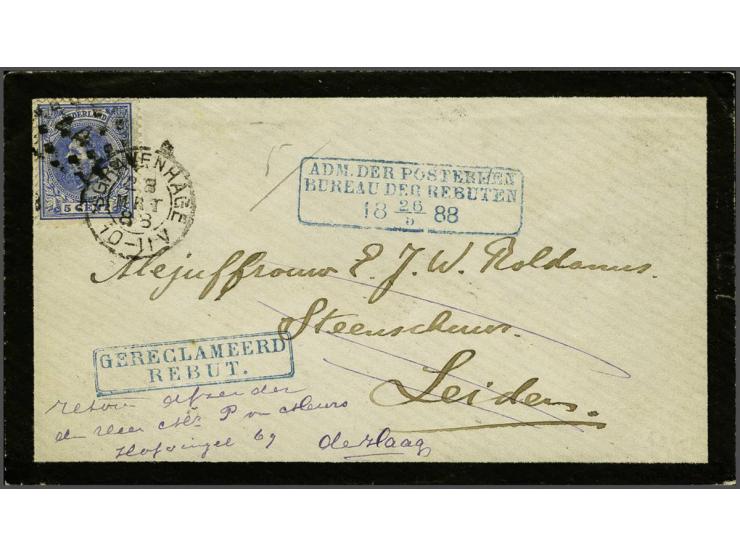 NEDERLAND
5 CENT
'SGRAVENHAGE
28
MRT
88
10-11V
ADM. DER POSTERIJEN
BUREAU DER REBUTEN
18 26/5 88
Mejuffrouw E. J. W. Roldanus.
Steenschuur.
Leiden.
GERECLAMEERD
REBUT.
retour afzender
den Heer Mr P van Meurs
Hofsingel 69 den Haag